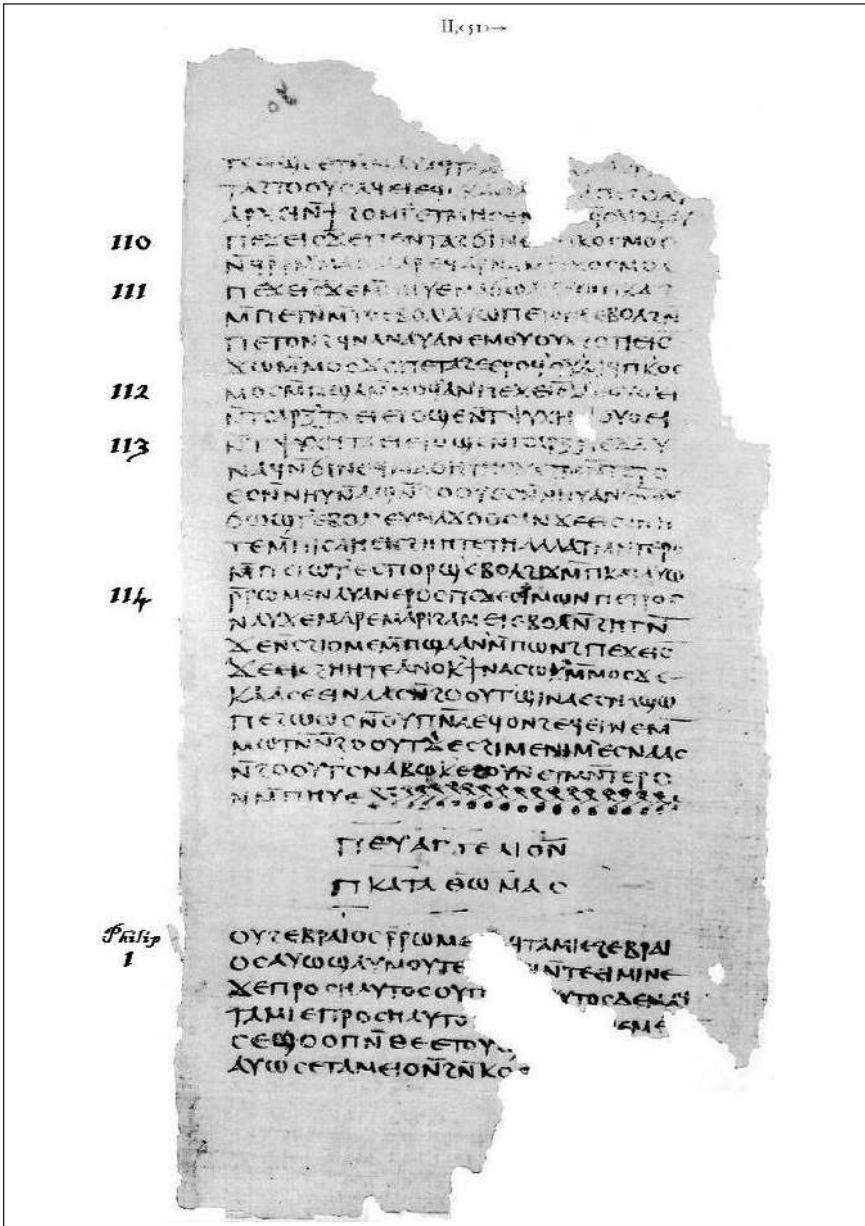 ⲧⲥⲱϣⲉ ⲉⲧⲙ̄ⲙⲁⲩ ⲁϥⲧⲁ
ⲧⲁϩⲧⲟⲟⲩⲥ ⲁϥⲉⲓ ⲉϥⲥⲕⲁⲉⲓ
ⲁⲣⲭⲉⲓ ⲛ̄ϯ ϩⲟⲙⲧ ⲉⲧⲙⲏⲥⲉ
110 ⲡⲉϫⲉ ⲓ̅ⲥ̅ ϫⲉ ⲡⲉⲛⲧⲁϩϭⲓⲛⲉ ⲕⲟⲥⲙⲟⲥ
ⲛ̄ϥⲣ̄ ⲣⲙ̄ⲙⲁⲟ ⲙⲁⲣⲉϥⲁⲣⲛⲁ ⲙ̄ⲡⲕⲟⲥⲙⲟⲥ
111 ⲡⲉϫⲉ ⲓ̅ⲥ̅ ϫⲉ ⲙ̄ⲡⲏⲩⲉ ⲛⲁϭⲱⲗ ⲁⲩⲱ ⲡⲕⲁϩ
ⲙ̄ⲡⲉⲧⲛ̄ⲙ̄ⲧⲟ ⲉⲃⲟⲗ ⲁⲩⲱ ⲡⲉⲧⲟⲛϩ ⲉⲃⲟⲗ ϩⲛ̄
ⲡⲉⲧⲟⲛϩ ϥⲛⲁⲛⲁⲩ ⲁⲛ ⲉⲙⲟⲩ ⲟⲩⲭ ϩⲟⲧⲓ ⲉⲓ̅ⲥ̅
ϫⲱ ⲙ̄ⲙⲟⲥ ϫⲉ ⲡⲉⲧⲁϩⲉ ⲉⲣⲟϥ ⲟⲩⲁⲁϥ ⲡⲕⲟⲥ
112 ⲙⲟⲥ ⲙ̄ⲡϣⲁ ⲙ̄ⲙⲟϥ ⲁⲛ ⲡⲉϫⲉ ⲓ̅ⲥ̅ ϫⲉ ⲟⲩⲟⲉⲓ
ⲛ̄ⲧⲥⲁⲣⲝ ⲧⲁⲉⲓ ⲉⲧⲟϣⲉ ⲛ̄ⲧⲯⲩⲭⲏ ⲟⲩⲟⲉⲓ
113 ⲛ̄ⲧⲯⲩⲭⲏ ⲧⲁⲉⲓ ⲉⲧⲟϣⲉ ⲛ̄ⲧⲥⲁⲣⲝ ⲡⲉϫⲁⲩ
ⲛⲁϥ ⲛ̄ϭⲓ ⲛⲉϥⲙⲁⲑⲏⲧⲏⲥ ϫⲉ ⲧⲙⲛ̄ⲧⲉⲣⲟ
ⲉⲥⲛ̄ⲛⲏⲩ ⲛ̄ⲁϣ ⲛ̄ϩⲟⲟⲩ ⲉⲥⲛ̄ⲛⲏⲩ ⲁⲛ ϩⲛ̄ ⲟⲩ
ϭⲱϣⲧ ⲉⲃⲟⲗ ⲉⲩⲛⲁϫⲟⲟⲥ ⲁⲛ ϫⲉ ⲉⲓⲥϩⲏⲏ
ⲧⲉ ⲙ̄ⲡⲓⲥⲁ ⲏ ⲉⲓⲥϩⲏⲏⲧⲉ ⲧⲏ ⲁⲗⲗⲁ ⲧⲙⲛ̄ⲧⲉⲣⲟ
ⲙ̄ⲡⲉⲓⲱⲧ ⲉⲥⲡⲟⲣϣ ⲉⲃⲟⲗ ϩⲓϫⲙ̄ ⲡⲕⲁϩ ⲁⲩⲱ
114 ⲣ̄ⲣⲱⲙⲉ ⲛⲁⲩ ⲁⲛ ⲉⲣⲟⲥ ⲡⲉϫⲉ ⲥⲓⲙⲱⲛ ⲡⲉⲧⲣⲟⲥ
ⲛⲁⲩ ϫⲉ ⲙⲁⲣⲉ ⲙⲁⲣⲓϩⲁⲙ ⲉⲓ ⲉⲃⲟⲗ ⲛ̄ϩⲏⲧⲛ̄
ϫⲉ ⲛ̄ⲥϩⲓⲟⲙⲉ ⲙ̄ⲡϣⲁ ⲁⲛ ⲙ̄ⲡⲱⲛϩ ⲡⲉϫⲉ ⲓ̅ⲥ̅
ϫⲉ ⲉⲓⲥϩⲏⲏⲧⲉ ⲁⲛⲟⲕ ϯⲛⲁⲥⲱⲕ ⲙ̄ⲙⲟⲥ ϫⲉ
ⲕⲁⲁⲥ ⲉⲉⲓⲛⲁⲁⲥ ⲛ̄ϩⲟⲟⲩⲧ ϣⲓⲛⲁ ⲉⲥⲛⲁϣⲱ
ⲡⲉ ϩⲱⲱⲥ ⲛ̄ⲟⲩⲡ̅ⲛ̅ⲁ̅ ⲉϥⲟⲛϩ ⲉϥⲉⲓⲛⲉ ⲙ̄
ⲙⲱⲧⲛ̄ ⲛ̄ϩⲟⲟⲩⲧ ϫⲉ ⲥϩⲓⲙⲉ ⲛⲓⲙ ⲉⲥⲛⲁⲁⲥ
ⲛ̄ϩⲟⲟⲩⲧ ⲥⲛⲁⲃⲱⲕ ⲉϩⲟⲩⲛ ⲉⲧⲙⲛ̄ⲧⲉⲣⲟ
ⲛⲙ̄ⲡⲏⲩⲉ
ⲡⲉⲩⲁⲅⲅⲉⲗⲓⲟⲛ
ⲡⲕⲁⲧⲁ ⲑⲱⲙⲁⲥ
Philip 1 ⲟⲩϩⲉⲃⲣⲁⲓⲟⲥ ⲣ̄ⲣⲱⲙⲉ ϥⲧⲁⲙⲓⲉ ϩⲉⲃⲣⲁⲓ
ⲟⲥ ⲁⲩⲱ ϣⲁⲩⲙⲟⲩⲧⲉ ⲛ̄ⲧⲉⲉⲓⲙⲓⲛⲉ
ϫⲉ ⲡⲣⲟⲥⲏⲗⲩⲧⲟⲥ ⲟⲩⲡ ⲩⲧⲟⲥ ⲇⲉ ⲙⲁϥ
ⲧⲁⲙⲓⲉ ⲡⲣⲟⲥⲏⲗⲩⲧⲟ ⲉⲙⲉ
ⲥⲉϣⲟⲟⲡ ⲛ̄ⲑⲉ ⲉⲧⲟⲩ
ⲁⲩⲱ ⲥⲉⲧⲁⲙⲉⲓⲟ ⲛ̄ϩⲛ̄ⲕⲟ